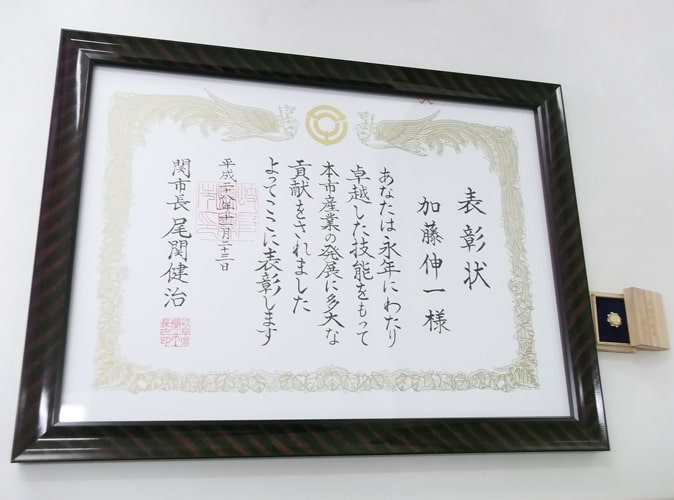 表彰状
加藤伸一様
あなたは永年にわたり
卓越した技能をもって
本市産業の発展に多大な
貢献をされました
よってここに表彰します
平成二十八年十一月二十三日
関市長 尾関健治